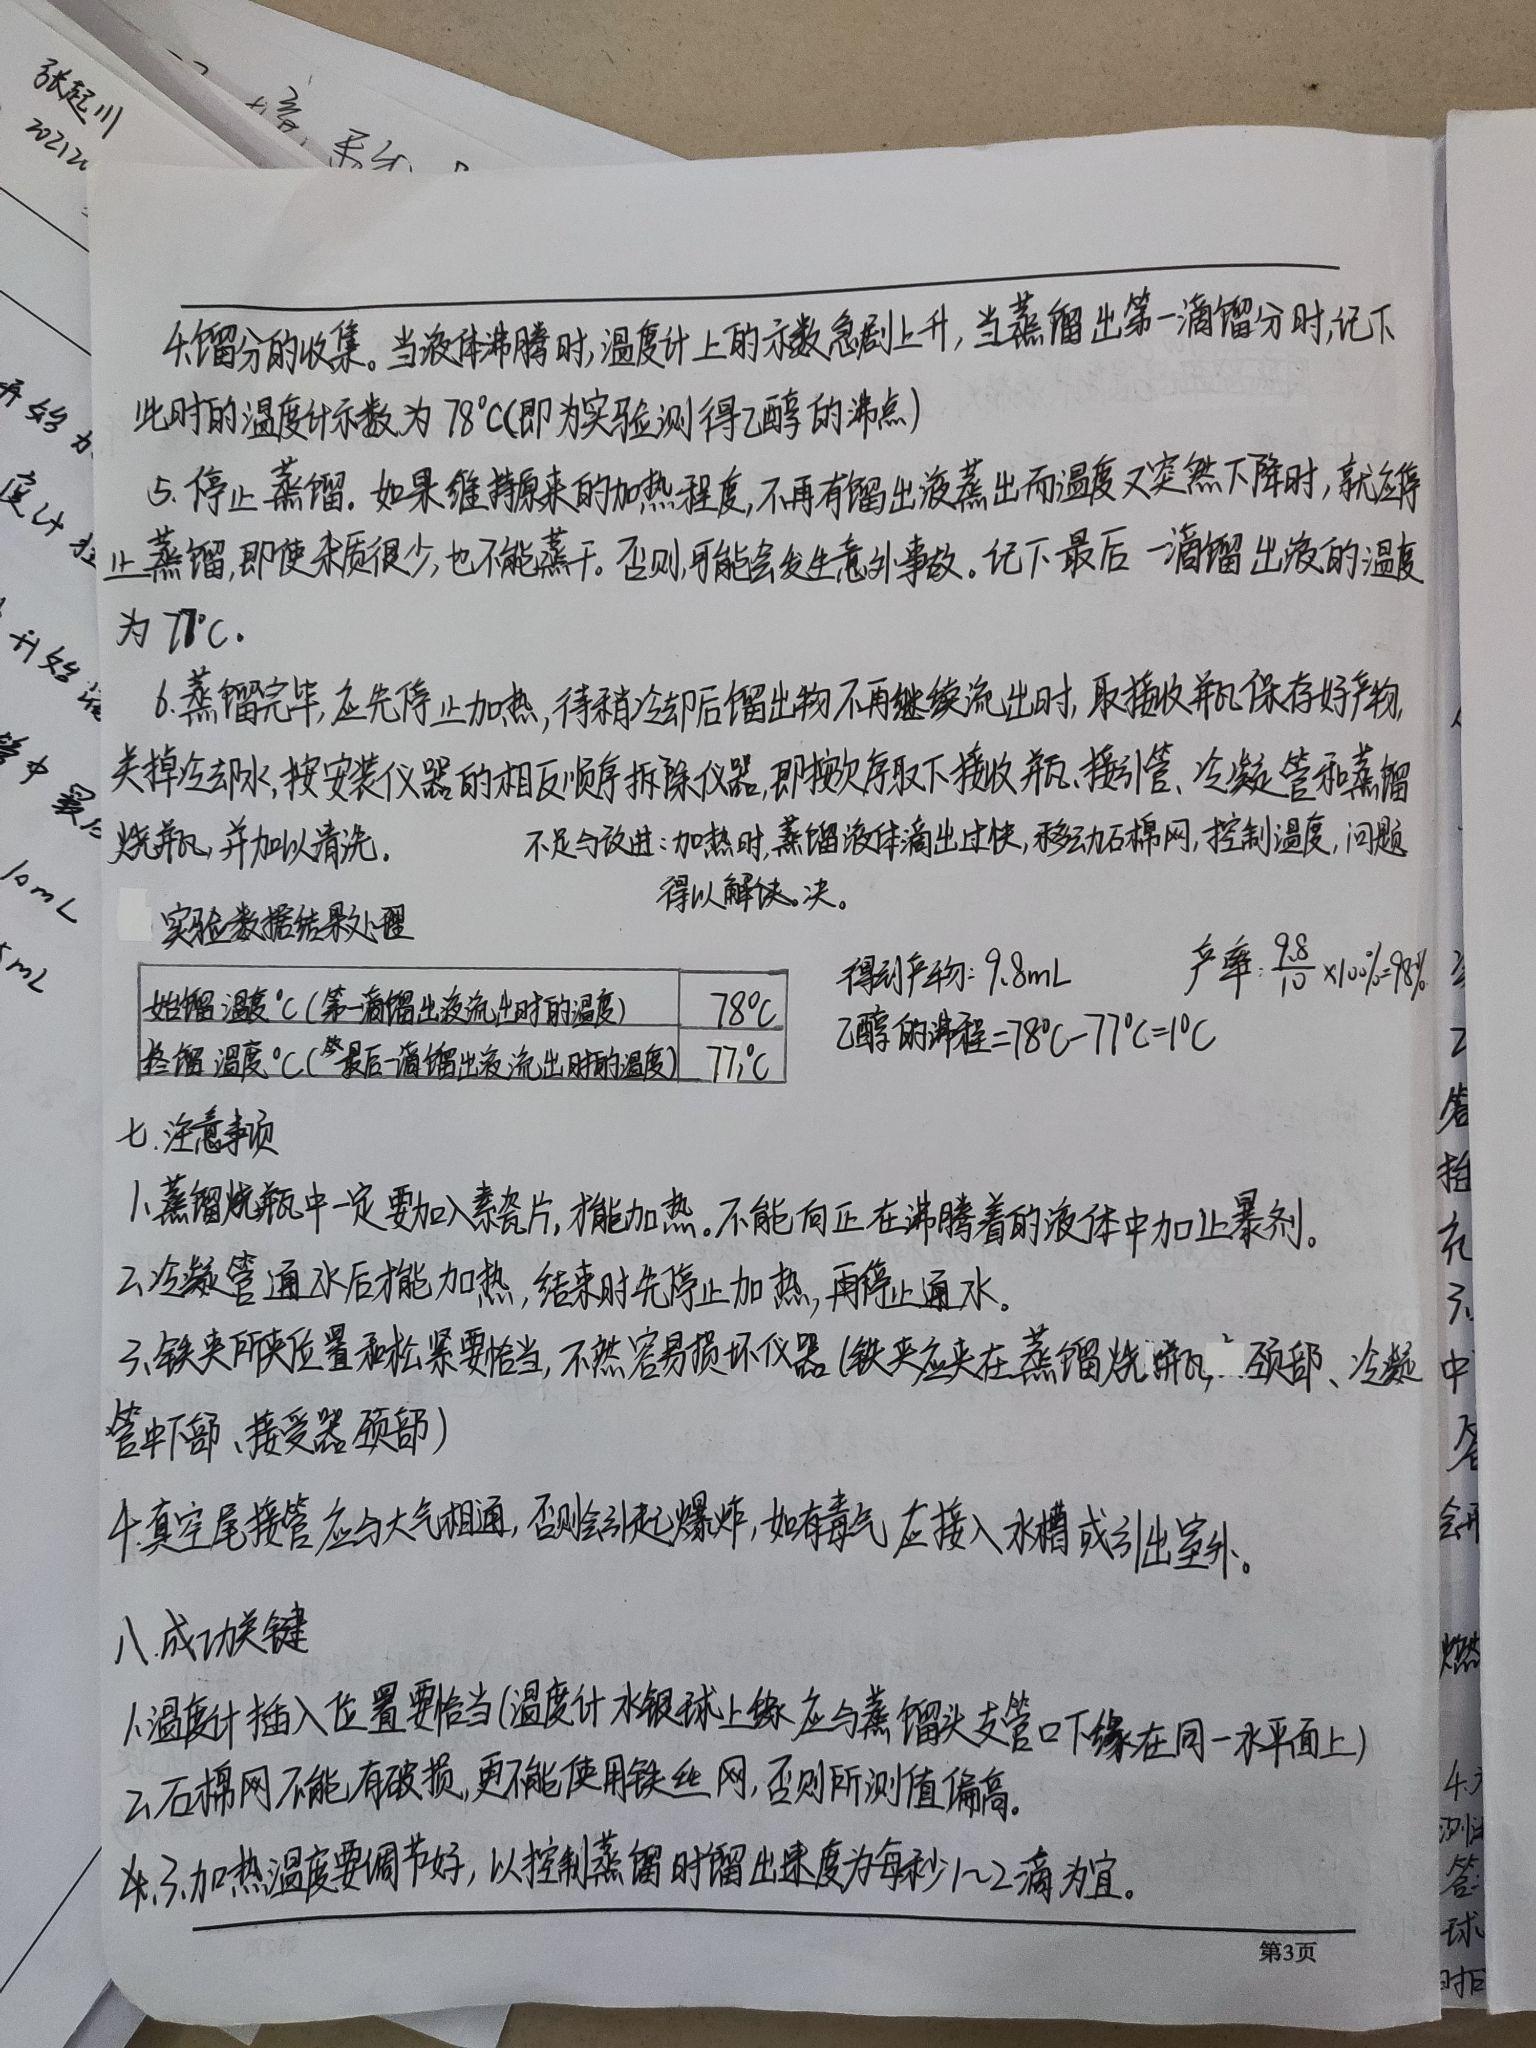 张起川
202120
4.馏分的收集。当液体沸腾时,温度计上的示数急剧上升,当蒸馏出第一滴馏分时,记下
此时的温度计示数为78℃(即为实验测得乙醇的沸点)
5.停止蒸馏.如果维持原来的加热程度,不再有馏出液蒸出而温度又突然下降时,就应停
止蒸馏,即使杂质很少,也不能蒸干。否则,可能会发生意外事故。记下最后一滴馏出液的温度
为77℃.
6.蒸馏完毕,应先停止加热,待稍冷却后馏出物不再继续流出时,取接收瓶保存好产物,
关掉冷却水,按安装仪器的相反顺序拆除仪器,即按次序取下接收瓶、接引管、冷凝管和蒸馏
烧瓶,并加以清洗.
不足与改进:加热时,蒸馏液体滴出过快,移动石棉网,控制温度,问题
得以解决。
实验数据结果处理
始馏温度℃(第一滴馏出液流出时的温度) 78℃
终馏温度℃(最后一滴馏出液流出时的温度) 77℃
得到产物:9.8mL
产率:9.8/10×100%=98%
乙醇的沸程=78℃-77℃=1℃
七.注意事项
1.蒸馏烧瓶中一定要加入素瓷片,才能加热。不能向正在沸腾着的液体中加止暴剂。
2.冷凝管通水后才能加热,结束时先停止加热,再停止通水。
3.铁夹所夹位置和松紧要恰当,不然容易损坏仪器(铁夹应夹在蒸馏烧瓶颈部、冷凝
管中下部、接受器颈部)
4.真空尾接管应与大气相通,否则会引起爆炸,如有毒气应接入水槽或引出室外。
八.成功关键
1.温度计插入位置要恰当(温度计水银球上缘应与蒸馏头支管口下缘在同一水平面上)
2.石棉网不能有破损,更不能使用铁丝网,否则所测值偏高。
3.加热温度要调节好,以控制蒸馏时馏出速度为每秒1~2滴为宜。
第3页